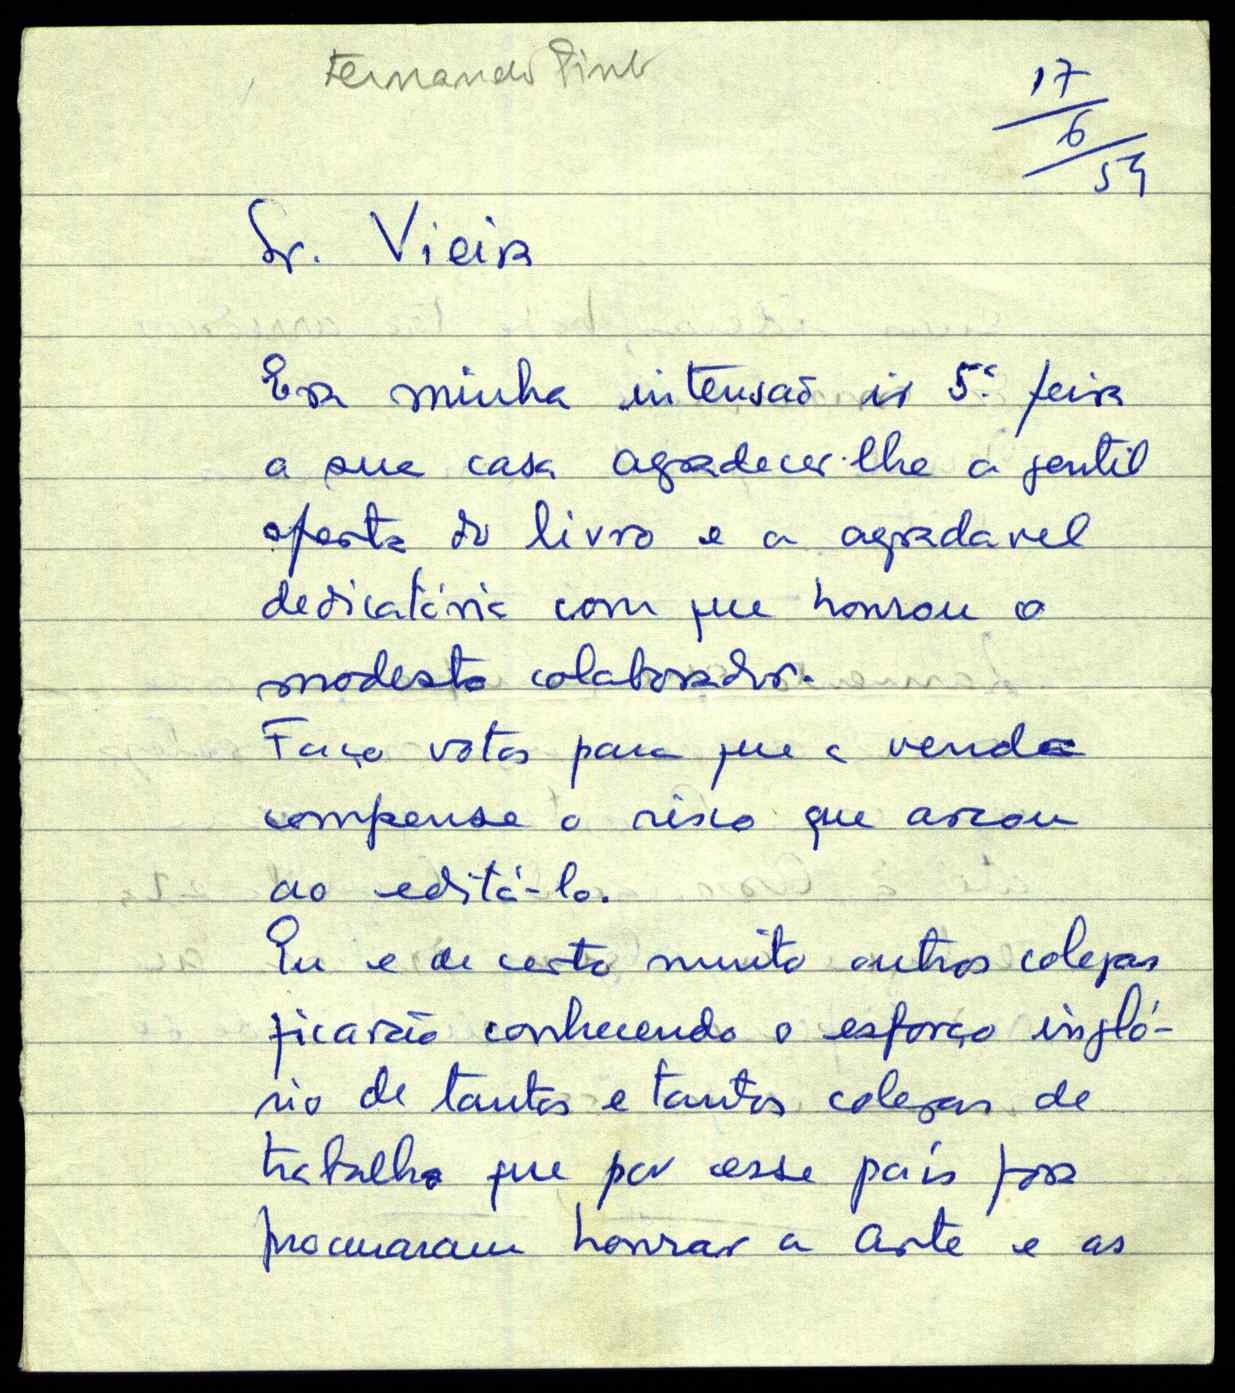 Fernando Pinto
17/6/54
Sr. Vieira
Era minha intensão ir 5ª feira
a sua casa agradecer-lhe a gentil
oferta do livro e a agradavel
dedicatória com que honrou o
modesto colaborador.
Faço votos para que a venda
compense o risco que arcou
ao editá-lo.
Eu e de certo muito outros colegas
ficarão conhecendo o esforço ingló-
rio de tantos e tantos colegas de
trabalho que por esse país fora
procuraram honrar a arte e as